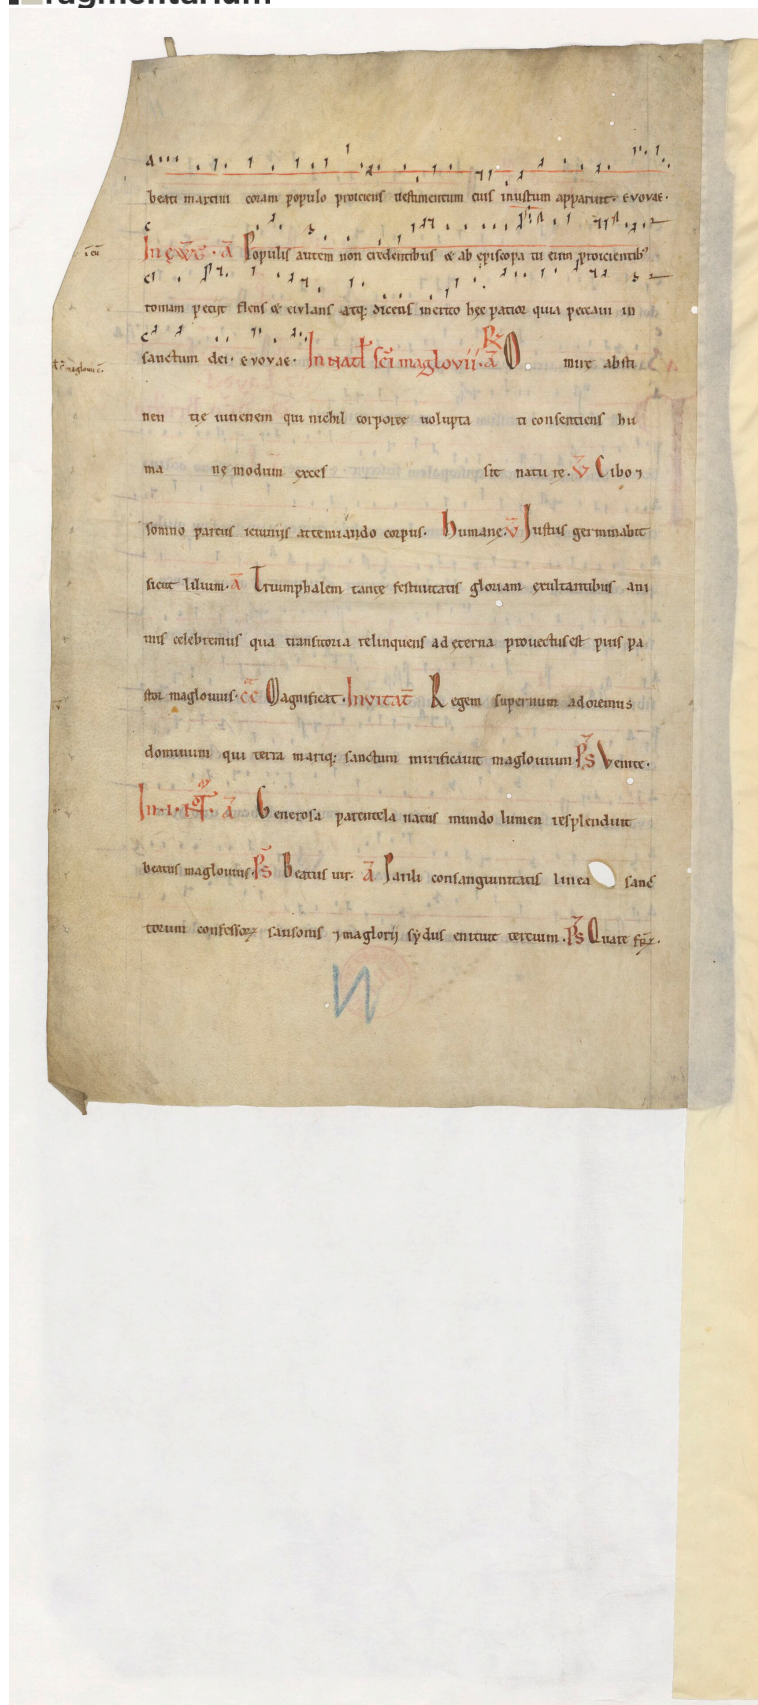 fragmentarium
beati martini coram populo proiciens vestimentum eius inustum apparuit. evovae.
In evḡ. ā Populis autem non credentibus & ab episcopa tu eum proicientib'
tomam petiit flens & eiulans atq: dicens merito hęc patior quia peccavi in
sanctum dei. evovae. In natł sc̄i maglovii. R̄ ā O mirę absti
nen tię iuvenem qui nichil corporeę volupta ti consentiens hu
ma nę modum exces sit natu rę. v̄ Cibo ⁊
somno parcus ieiuniis attenuando corpus. humanę. v̄ Justus germinabit
sicut lilium. ā Triumphalem tantę festivitatis gloriam exultantibus ani
mis celebremus qua transitoria relinquens ad ęterna provectus est pius pa
stor maglovius. c̄ē Magnificat. Invitat̄ Regem supernum adoremus
dominum qui terra mariq: sanctum mirificavit maglovium p̄s Venite.
In. i. not̄. ā Generosa parentela natus mundo lumen resplenduit
beatus maglovius. P̄s Beatus vir. ā Parili consanguinitatis linea sanc
torum confessoꝝ sansonis ⁊ maglorii sydus enituit tercium. P̄s Quare fr̄.